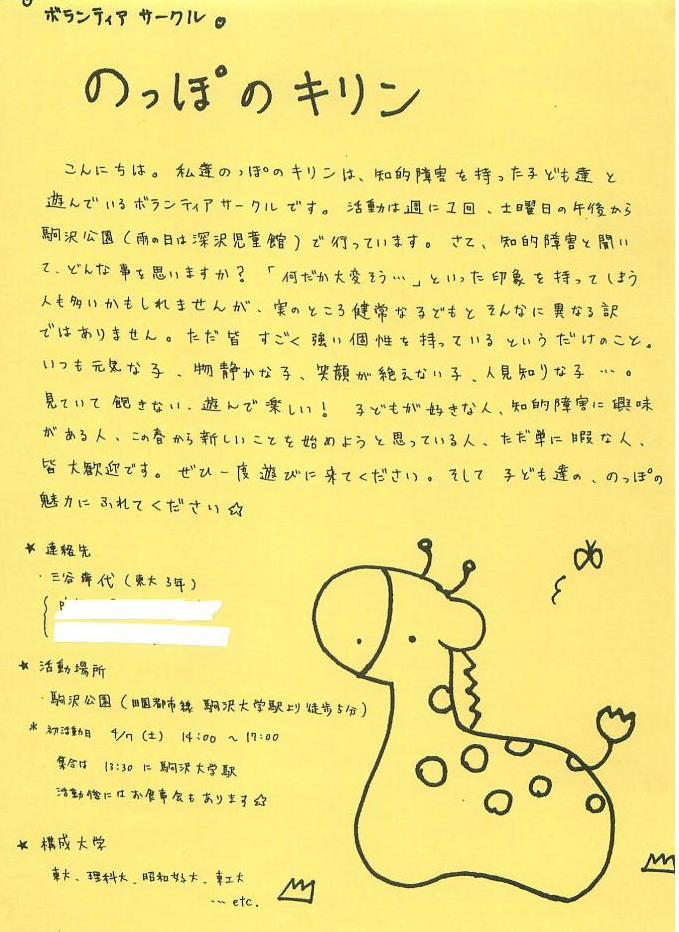 ボランティア サークル
のっぽのキリン
こんにちは。私達のっぽのキリンは、知的障害を持った子ども達と
遊んでいるボランティアサークルです。活動は週に1回、土曜日の午後から
駒沢公園(雨の日は深沢児童館)で行っています。さて、知的障害と聞い
て、どんな事を思いますか?「何だか大変そう…」といった印象を持ってしまう
人も多いかもしれませんが、実のところ健常な子どもとそんなに異なる訳
ではありません。ただ皆 すごく強い個性を持っているというだけのこと。
いつも元気な子、物静かな子、笑顔が絶えない子、人見知りな子…。
見ていて飽きない、遊んで楽しい! 子どもが好きな人、知的障害に興味
がある人、この春から新しいことを始めようと思っている人、ただ単に暇な人、
皆大歓迎です。ぜひ一度遊びに来てください。そして子ども達の、のっぽの
魅力にふれてください☆
★ 連絡先
・三谷 代(東大3年)
★ 活動場所
・駒沢公園(田園都市線 駒沢大学駅より徒歩5分)
* 初活動日 4/7(土) 14:00 〜 17:00
集合は 13:30 に駒沢大学駅
活動後にはお食事会もあります☆
★ 構成大学
東大、理科大、昭和女子大、東工大
… etc.